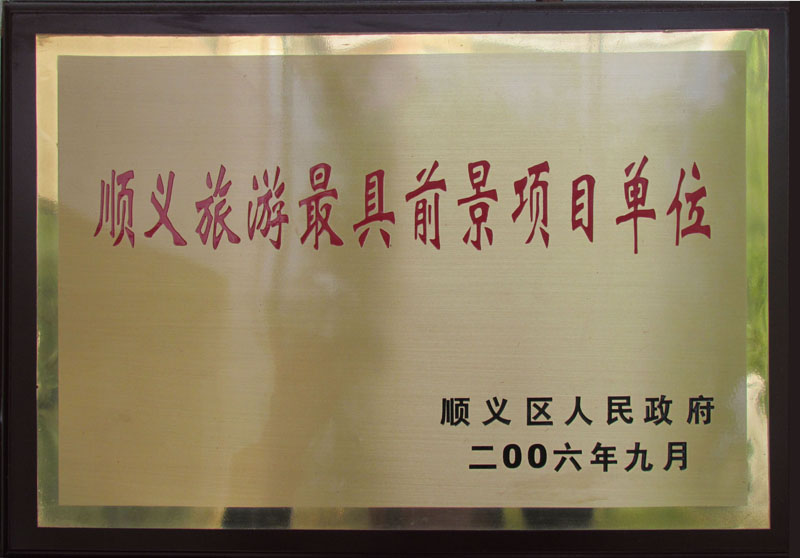 顺义旅游最具前景项目单位
顺义区人民政府
二00六年九月